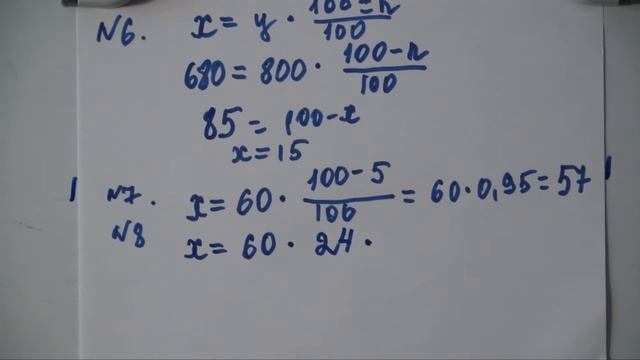 №6. x = y · (100 - n)/100
680 = 800 · (100 - n)/100
85 = 100 - x
x = 15
№7. x = 60 · (100 - 5)/100 = 60 · 0,95 = 57
№8 x = 60 · 24 ·